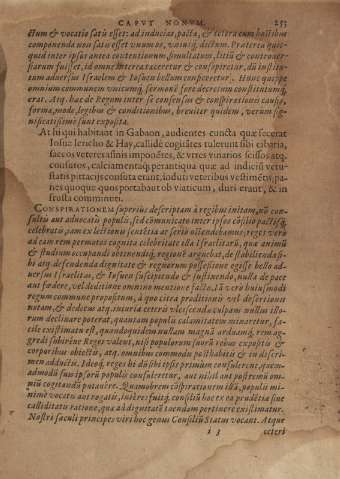 CAPVT NONVM. 253
ctum & vocatio satu esset: ad inducias, pacta, & cetera cum hostibus
componenda non satu esset vnum os, vnus, dictum. Præterea quic-
quid inter ipsos antea contentionum, simultatum, litiū & controuer-
siarum fuisset, id omne interea taceretur & conspiretur, dū institu-
tum aduersus Israelem & Iosucu bellum conficeretur. Hunc quippe
omnium communem vnicumq́; sermonē fore decretum constitutumq́;
erat. Atq́; hac de Regum inter se consensus & conspirationis causa,
forma, mode, legibus & conditionibus, breuiter quidem, verùm sig-
nificatissimè sunt exposita.
At hi qui habitant in Gabaon, audientes cuncta quæ fecerat
Iosue Iericho & Hay, callidè cogitātes tulerunt sibi cibaria,
saccos veteres asinis imponētes, & vtres vinarios scissos atq́;
consutos, calciamentaq́; perantiqua quæ ad indiciū vetu-
statis pittacijs consuta erant, induti veteribus vestimētis, pa-
nes quoque quos portabant ob viaticum, duri erant, & in
frusta comminuti.
CONSPIRATIONEM superius descriptam à regibus initam, nō con-
sultū aut aduocatis populis, sed cōmunicato inter ipsos cōsilio pactūq́;
celebratū, iam ex lectionis sentētia ac serie ostendebamus; reges vero
ad eam rem permotos cognita celebritate reb⁹ Israëlitarū, qua animū
& studium occupandi ostendendiq́; regionē arguebat, de stabilitādis si-
bi atq́; defendenda dignitate & regiorum possessione egisse bello ad-
uersus Israëlitas, & Iosuen suscipiendo & sustinendo, nulla de pace
aut fœdere, vel deditione omnino mentione facta. Iā verò huiusmodi
regum commune propositum, à quo citra proditionis vel desertionis
notam, & dedecus atq́; incuria ceteris vlciscenda culpam nullus illo-
rum declinare poterat, quantam populis calamitatem minaretur, fa-
cile existimatu est, quandoquidem nullam magnā arduamq́; rem ag-
gredi subireue Reges valent, nisi populorum suorū rebus expositis &
corporibus obiectis, atq́; omnibus commodis posthabitis & in discri-
men adductis. Ideoq́; reges hi dū sibi ipsis primùm consulerent, quem-
admodū suis ipsorū populis consuleretur, aut nihil aut postremū om-
niū cogitandū putauere. Quamobrem cōspirationem illā, populis mi-
nimè vocatis aut rogatis, iniere: fuitq́; consiliū hoc ex ea prudētia siue
calliditatis ratione, qua ad dignitatē tuendam pertinere existimatur.
Nostri sæculi principes viri hoc genus Consiliū Status vocant. Atque
i 3 ceteri